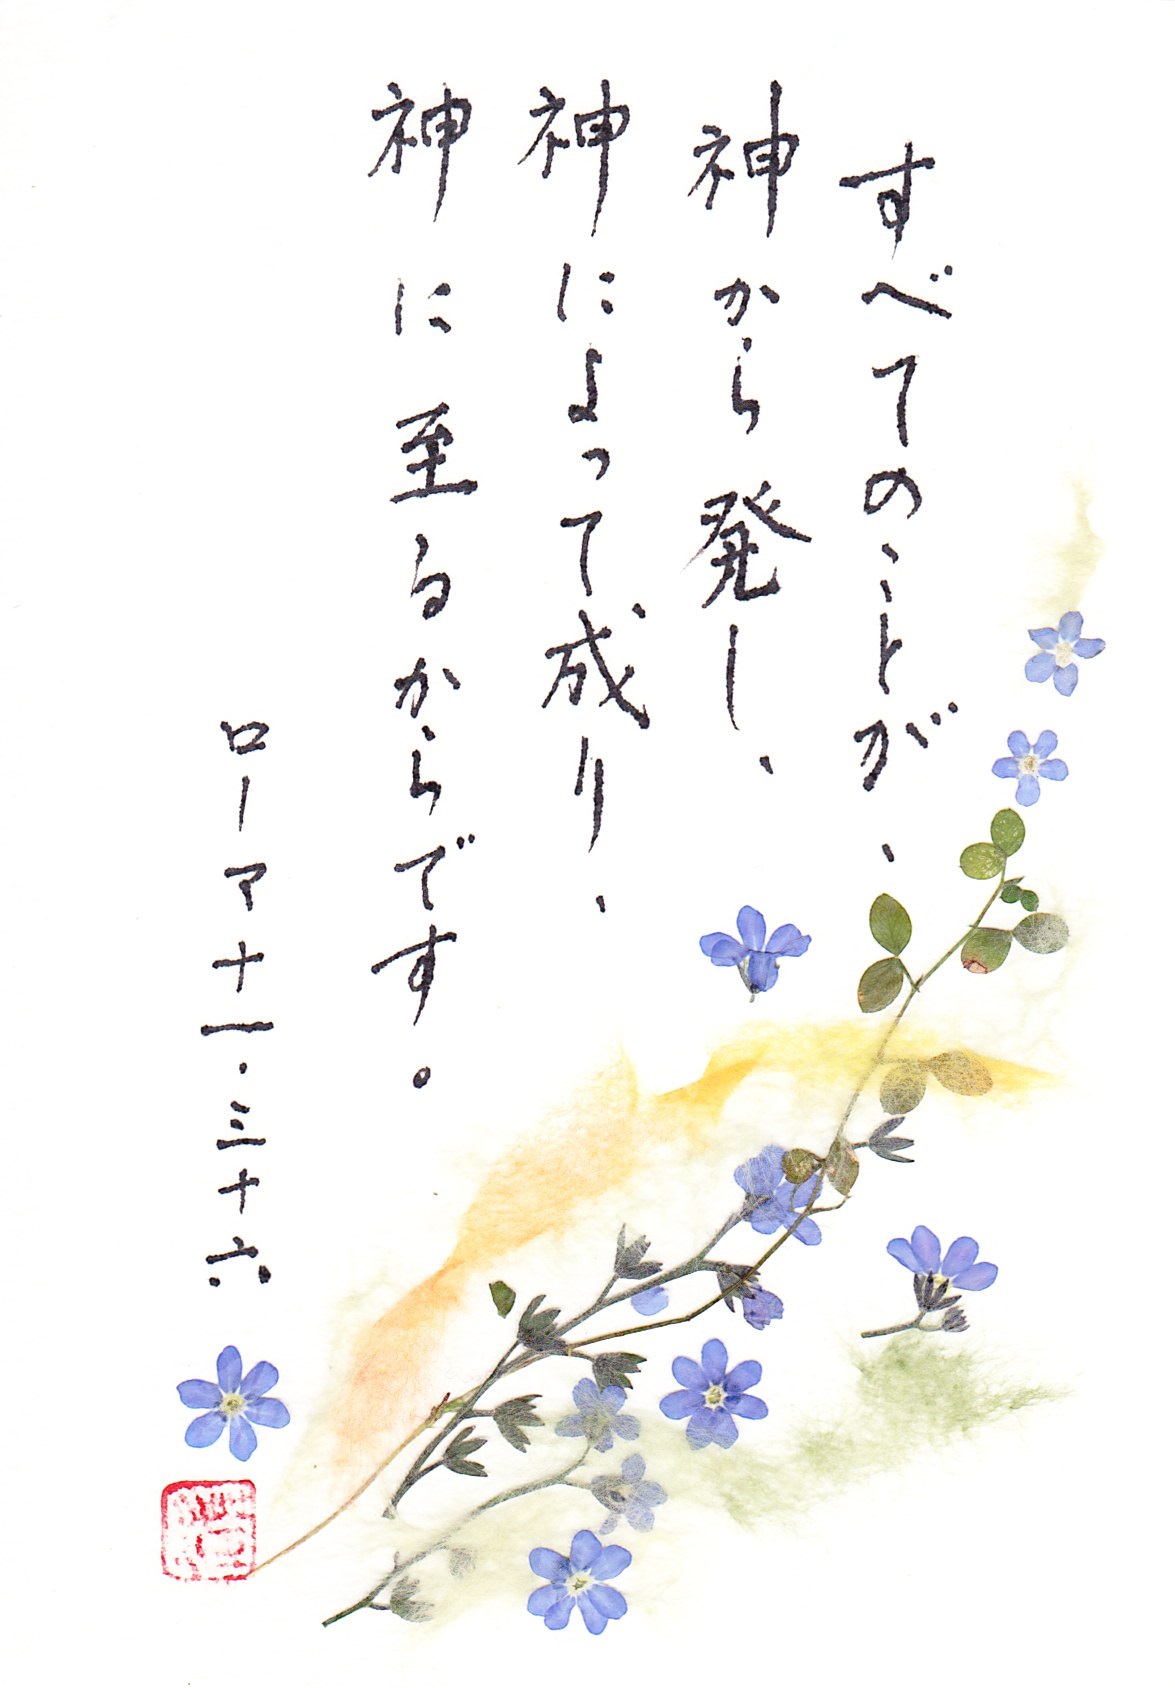 すべてのことが、
神から発し、
神によって成り、
神に至るからです。
ローマ十一・三十六